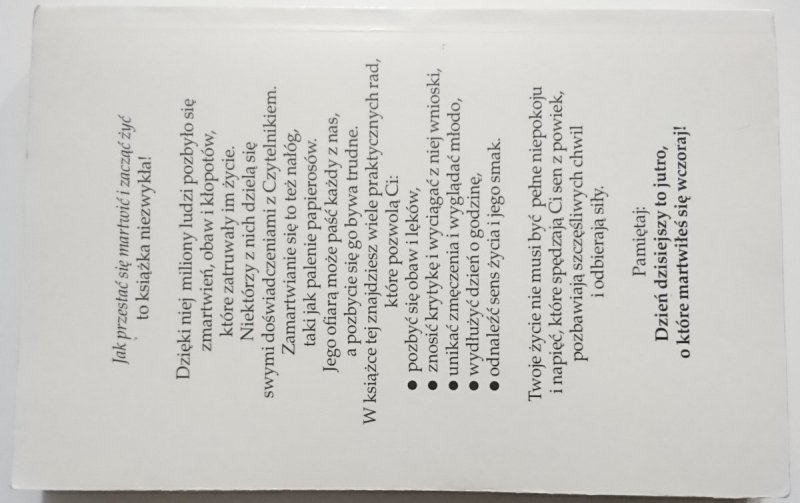 Jak przestać się martwić i zacząć żyć
to książka niezwykła!
Dzięki niej miliony ludzi pozbyło się
zmartwień, obaw i kłopotów,
które zatruwały im życie.
Niektórzy z nich dzielą się
swymi doświadczeniami z Czytelnikiem.
Zamartwianie się to też nałóg,
taki jak palenie papierosów.
Jego ofiarą może paść każdy z nas,
a pozbycie się go bywa trudne.
W książce tej znajdziesz wiele praktycznych rad,
które pozwolą Ci:
● pozbyć się obaw i lęków,
● znosić krytykę i wyciągać z niej wnioski,
● unikać zmęczenia i wyglądać młodo,
● wydłużyć dzień o godzinę,
● odnaleźć sens życia i jego smak.
Twoje życie nie musi być pełne niepokoju
i napięć, które spędzają Ci sen z powiek,
pozbawiają szczęśliwych chwil
i odbierają siły.
Pamiętaj:
Dzień dzisiejszy to jutro,
o które martwiłeś się wczoraj!